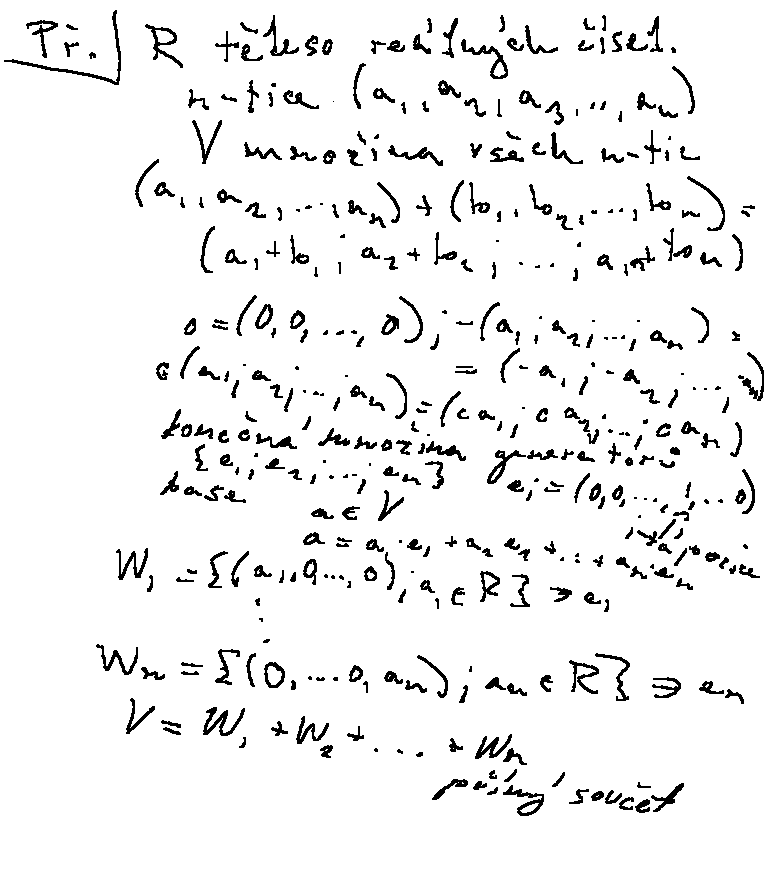 Př. R těleso reálných čísel.
n-tice (a₁, a₂, a₃, .., aₙ)
V množina všech n-tic
(a₁, a₂, ..., aₙ) + (b₁, b₂, ..., bₙ) =
(a₁+b₁; a₂+b₂; ...; aₙ+bₙ)
o = (0, 0, ..., 0); -(a₁; a₂; ...; aₙ) =
= (-a₁; -a₂; ...; -aₙ)
c(a₁; a₂; ...; aₙ) = (ca₁; ca₂; ...; caₙ)
konečná množina generátorů
{e₁; e₂; ...; eₙ} eᵢ = (0,0, ..., 1, ... 0)
base i-tá pozice
a ∈ V
a = a₁e₁ + a₂e₂ + ... + aₙeₙ
W₁ = {(a₁, 0, ..., 0); a₁ ∈ R} ∋ e₁
⋮
Wₙ = {(0, ... 0, aₙ); aₙ ∈ R} ∋ eₙ
V = W₁ + W₂ + ... + Wₙ
přímý součet